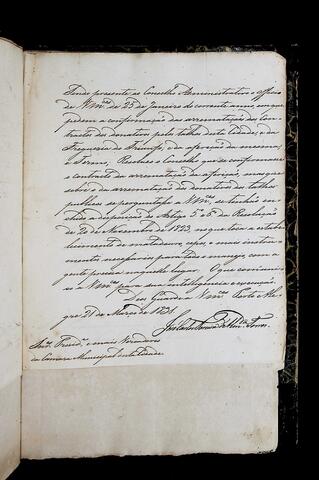 Sendo presente ao Conselho Administrativo o officio
de VMces de 25 de Janeiro do corrente anno, em que
pedem a confirmação das arrematações dos con-
tractos dos donativos pelos talhos desta Cidade, e da
Freguezia do Triumfo, da aferição de medidas,
e Ternos, Resolveo o Conselho que se confirmasse
o contracto da arrematação da aferição, e em que
sobre o da arrematação do donativo dos talhos
publicos se pergunta a VMces, se tenhão
a disposição do Artigo 5 e 6 da Resolução
de 20 de Novembro de 1823, no que toca a estabe-
lecimento de matadouro, cepos, e mais instru-
mentos necessarios para
gente pobre naquelle lugar. O que communico
a VMces para sua intelligencia e execução.
Deos Guarde a VMces Porto Ale-
gre 21 de Março de 1831
Snres Presidte e mais Vereadores
da Camara Municipal desta Cidade